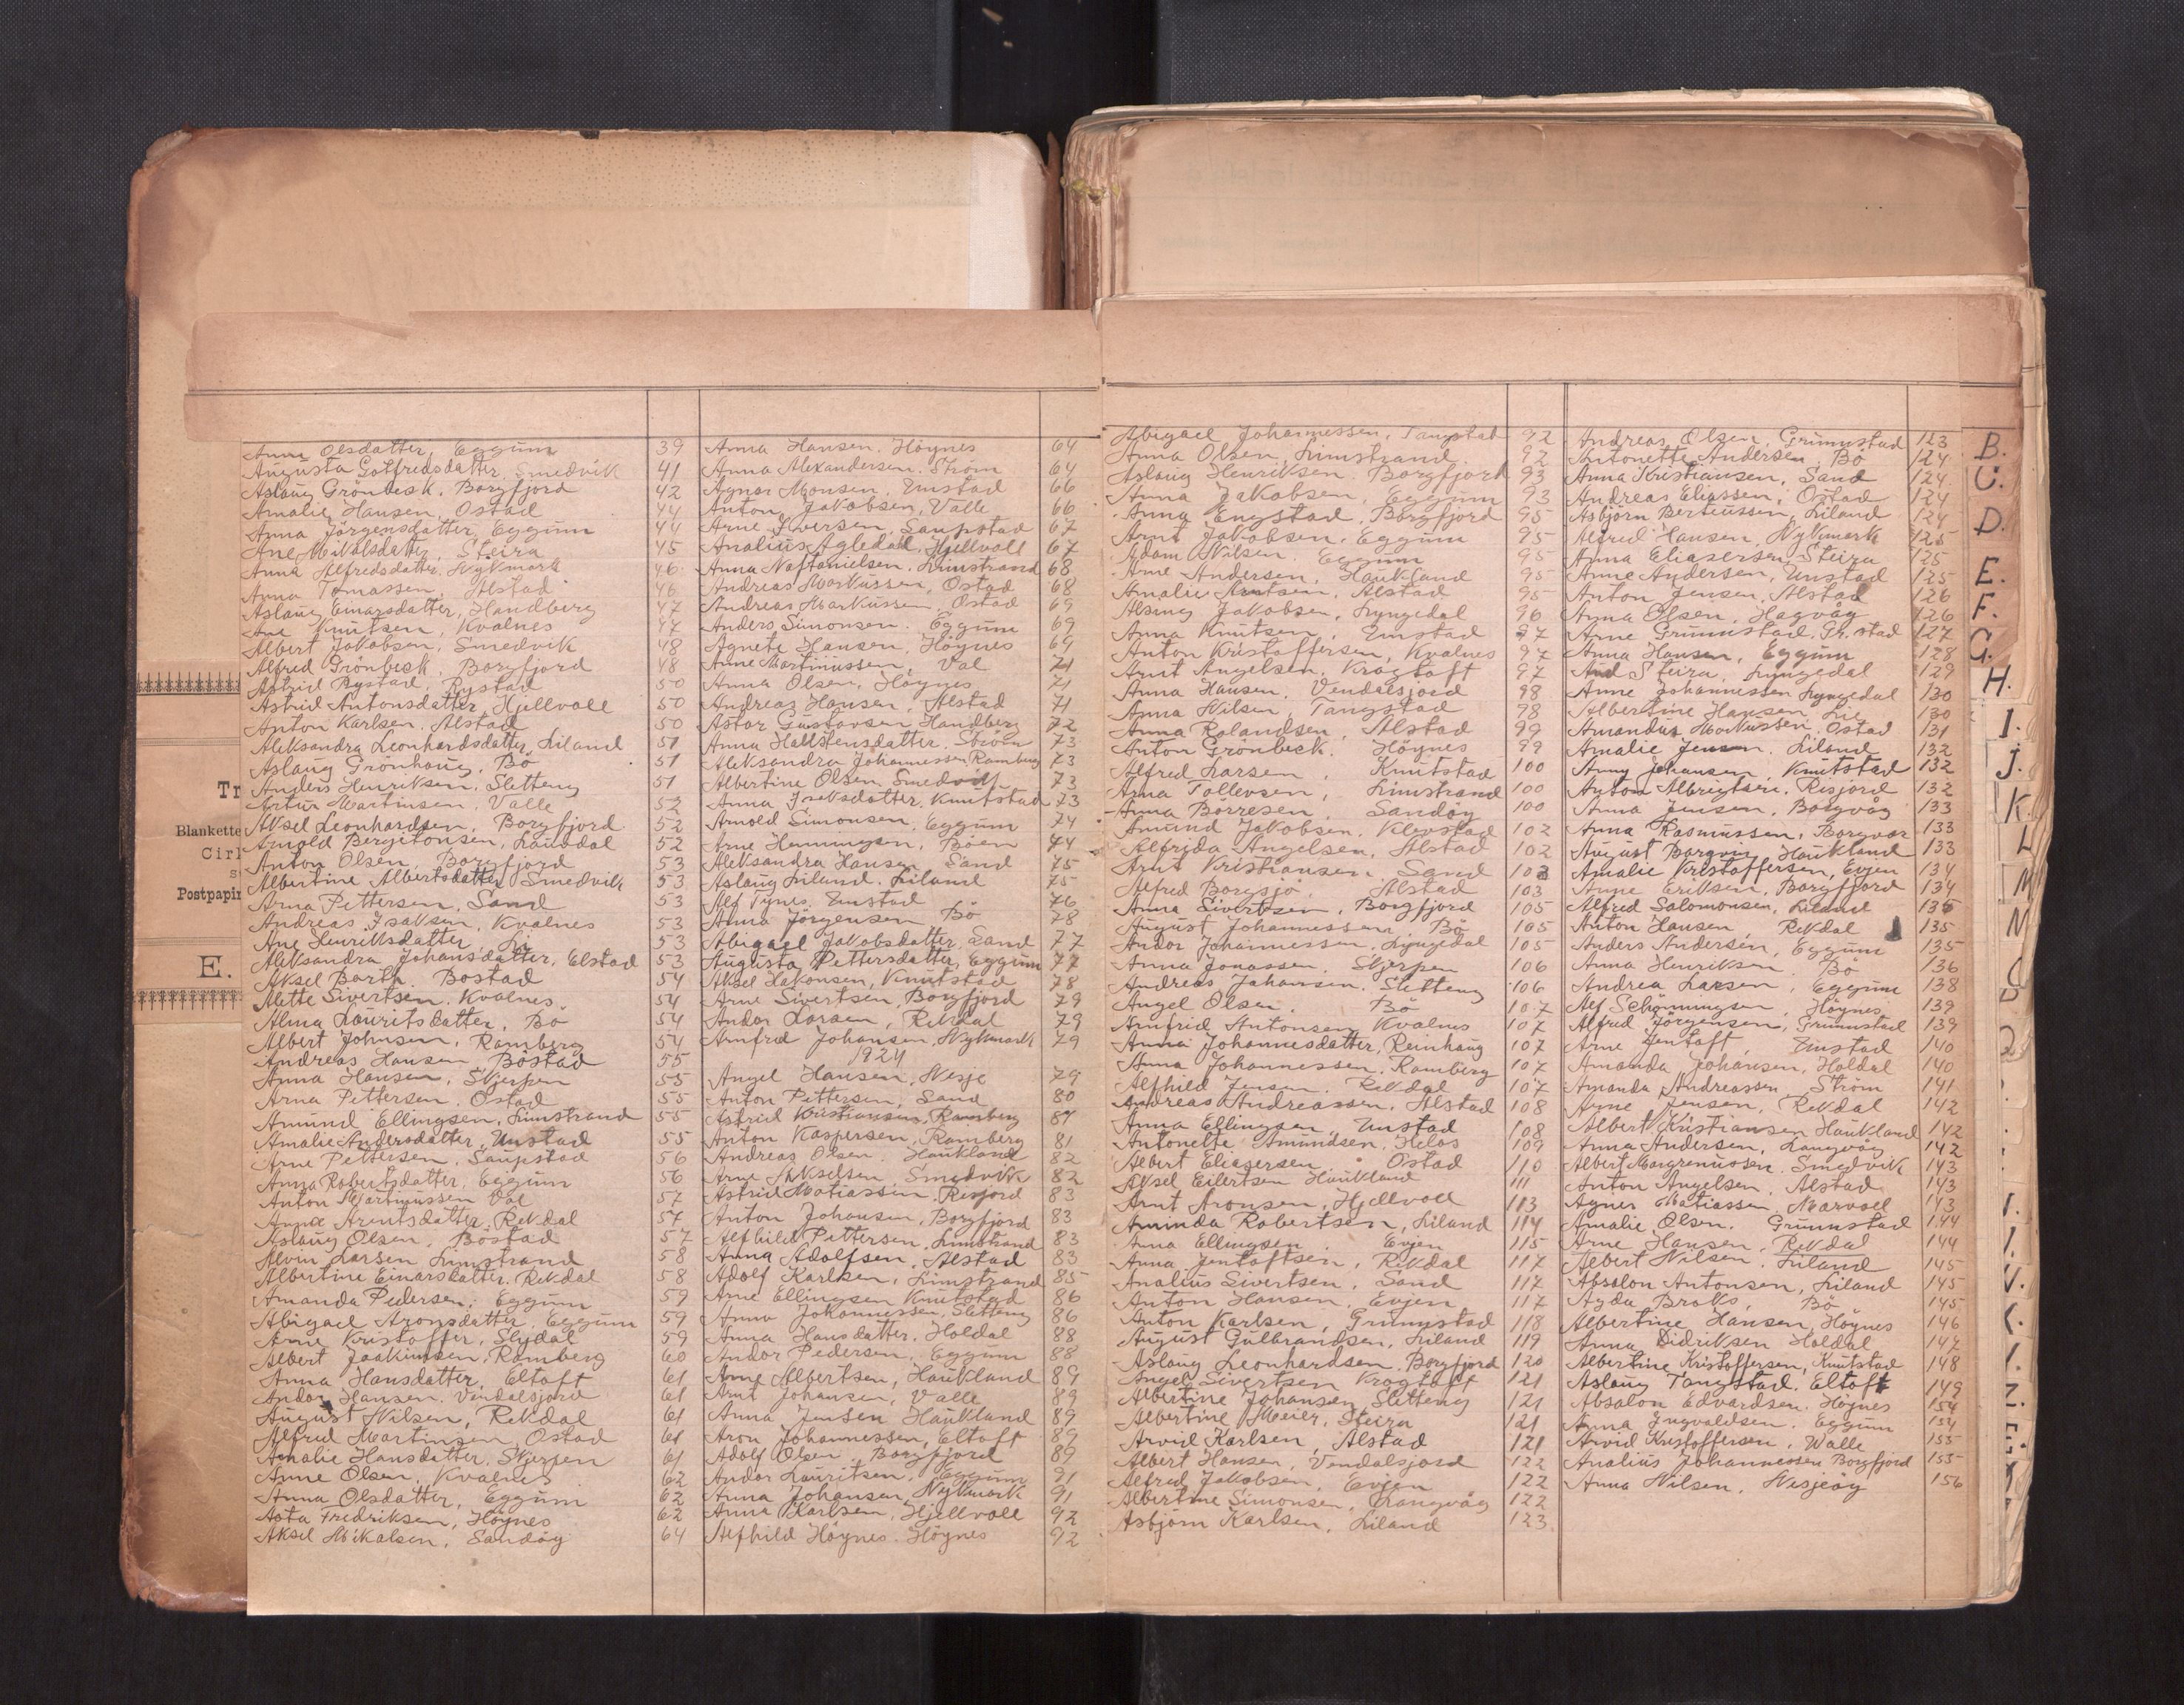 Anna Olsdatter, Eggum 39
Augusta Gotfredsdatter, Smedvik 41
Aslaug Grönbeck, Borgfjord 42
Amalie Hansen, Ostad 44
Anna Jörgensdatter, Eggum 44
Ane Mikalsdatter, Steira 45
Anna Alfredsdatter, Nykmark 46
Anna Tomassen, Alstad 46
Aslaug Einarsdatter, Handberg 47
Ane Knutsen, Kvalnes 47
Albert Jakobsen, Smedvik 48
Alfred Grönbeck, Borgfjord 48
Astrid Rystad, Rystad 50
Astrid Antonsdatter, Hjellvoll 50
Anton Karlsen, Alstad 50
Aleksandra Leonhardsdatter, Liland 51
Aslaug Grönhaug, Bö 51
Anders Henriksen, Sletteng 51
Artur Martinsen, Valle 52
Aksel Leonhardsen, Borgfjord 52
Arnold Bergetonsen, Lauvdal 52
Anton Olsen, Borgfjord 53
Albertine Albertsdatter, Smedvik 53
Arna Pettersen, Sand 53
Andreas Isaksen, Kvalnes 53
Ane Henriksdatter, Li 53
Aleksandra Johansdatter, Elstad 53
Aksel Barth, Bostad 54
Alette Sivertsen, Kvalnes 54
Alma Lauritsdatter, Bö 54
Albert Johnsen, Ramberg 54
Andreas Hansen, Böstad 55
Anna Hansen, Skjerpen 55
Arna Pettersen, Ostad 55
Amund Ellingsen, Limstrand 55
Amalie Andersdatter, Unstad 55
Arne Pettersen, Saupstad 56
Anna Robertsdatter, Eggum 56
Anton Martinussen, Val 57
Anna Arentsdatter, Rekdal 57
Aslaug Olsen, Bostad 57
Alvin Larsen, Limstrand 58
Albertine Einarsdatter, Rekdal 58
Amanda Pedersen, Eggum 59
Abigael Aronsdatter, Eggum 59
Arne Kristoffer, Slydal 59
Albert Joakimsen, Ramberg 60
Anna Hansdatter, Eltoft 61
Andor Hansen, Vendalsjord 61
August Nilsen, Rekdal 61
Alfred Martinsen, Ostad 61
Amalie Hansdatter, Skjerpen 61
Anne Olsen, Kvalnes 62
Anna Olsdatter, Eggum 62
Asta Fredriksen, Höynes 62
Aksel Mikalsen, Sandöy 64
Anna Hansen, Höynes 64
Anna Alexandersen, Ström 64
Agnar Monsen, Unstad 66
Anton Jakobsen, Valle 66
Arne Iversen, Saupstad 67
Analius Agledal, Hjellvoll 67
Anna Naftanielsen, Limstrand 68
Andreas Markussen, Ostad 68
Andreas Markussen, Ostad 69
Anders Simonsen, Eggum 69
Agnete Hansen, Höynes 69
Anne Martinussen, Val 71
Anna Olsen, Höynes 71
Andreas Hansen, Alstad 71
Astor Gustavsen, Handberg 72
Anna Hallstensdatter, Ström 73
Aleksandra Johannessen, Ramberg 73
Albertine Olsen, Smedvik 73
Anna Isaksdatter, Knutstad 73
Arnold Simonsen, Eggum 74
Arne Henningsen, Böen 44
Aleksandra Hansen, Sand 75
Aslaug Liland, Liland 75
Alf Tynes, Unstad 76
Anna Jörgensen, Bö 78
Abigael Jakobsdatter, Sand 77
Augusta Pettersdatter, Eggum 77
Aksel Hakonsen, Knutstad 78
Arne Sivertsen, Borgfjord 79
Andor Larsen, Rekdal 79
Arnfred Johansen, Nykmark 79
1924
Angel Hansen, Nesje 79
Anton Pettersen, Sand 80
Astrid Kristiansen, Ramberg 81
Anton Kaspersen, Ramberg 81
Andreas Olsen, Haukland 82
Arne Akselsen, Smedvik 82
Astrid Matiassen, Risjord 83
Anton Johansen, Borgfjord 83
Alfhild Pettersen, Limstrand 83
Anna Adolfsen, Alstad 83
Adolf Karlsen, Limstrand 85
Arne Ellingsen, Knutstad 86
Anna Johannessen, Sletteng 86
Anna Hansdatter, Holdal 88
Andor Pedersen, Eggum 88
Arne Albertsen, Haukland 89
Arnt Johansen, Valle 89
Anna Jensen, Haukland 89
Aron Johannessen, Eltoft 89
Adolf Olsen, Borgfjord 89
Andor Lauritsen, Eggum 91
Anna Johansen, Nykmark 91
Anna Karlsen, Hjellvoll 92
Alfhild Höynes, Höynes 92
Abigael Johannessen, Tangstad 92
Anna Olsen, Limstrand 92
Aslaug Henriksen, Borgfjord 93
Anna Jakobsen, Eggum 93
Anna Engstad, Borgfjord 95
Arnt Jakobsen, Eggum 95
Adam Nilsen, Eggum 95
Arne Andersen, Haukland 95
Amalie Knutsen, Alstad 95
Alsing Jakobsen, Lyngedal 96
Anna Knutsen, Unstad 97
Anton Kristoffersen, Kvalnes 97
Arnt Angelsen, Krogtoft 97
Anna Hansen, Vendalsjord 98
Anna Nilsen, Tangstad 98
Anna Rolandsen, Alstad 99
Anton Grönbeck, Höynes 99
Alfred Larsen, Knutstad 100
Arna Tollevsen, Limstrand 100
Anna Börresen, Sandöy 100
Amund Jakobsen, Klevstad 102
Alfrida Angelsen, Alstad 102
Arnt Kristiansen, Sand 103
Alfred Borgsjö, Alstad 103
Anna Sivertsen, Borgfjord 105
August Johannessen, Bö 105
Andor Johannessen, Lyngedal 105
Anna Jonassen, Skjerpen 106
Andreas Johansen, Sletteng 106
Angel Olsen, Bö 107
Arnfrid Antonsen, Kvalnes 107
Anna Johannesdatter, Reinhaug 107
Anna Johannessen, Ramberg 107
Alfhild Jensen, Rekdal 107
Andreas Andreassen, Alstad 108
Anna Ellingsen, Unstad 108
Antonette Amundsen, Helos 109
Albert Eliasersen, Ostad 110
Aksel Eilertsen, Haukland 111
Arnt Aronsen, Hjellvoll 113
Aminda Robertsen, Liland 114
Anna Ellingsen, Evjen 115
Anna Jentoftsen, Rekdal 117
Analius Sivertsen, Sand 117
Anton Hansen, Evjen 117
Anton Karlsen, Grimmstad 118
August Gulbrandsen, Liland 119
Aslaug Leonhardsen, Borgfjord 120
Angel Sivertsen, Krogtoft 121
Albertine Johansen, Sletteng 121
Albertine Meier, Steira 121
Arvid Karlsen, Alstad 121
Albert Hansen, Vendalsjord 122
Alfred Jakobsen, Evjen 122
Albertine Simonsen, Langvåg 122
Asbjörn Karlsen, Liland 123
Andreas Olsen, Grimmstad 123
Antonette Andersen, Bö 124
Anna Kristiansen, Sand 124
Andreas Eliassen, Ostad 124
Asbjörn Berteussen, Liland 124
Alfred Hansen, Nykmark 125
Anna Eliasersen, Steira 125
Anne Andersen, Unstad 125
Anton Jensen, Alstad 126
Anna Olsen, Hagvåg 126
Arne Grimmstad, Gr.stad 127
Anna Hansen, Eggum 128
And Steira, Lyngedal 129
Anne Johannessen, Lyngedal 130
Albertine Hansen, Lie 130
Amandus Markussen, Ostad 131
Amalie Jensen, Liland 132
Anny Johansen, Knutstad 132
Anton Albrigtsen, Risjord 132
Anna Jensen, Borgvåg 133
Anna Rasmussen, Borgvår 133
August Borgvin, Haukland 133
Amalie Kristoffersen, Evjen 134
Anne Eriksen, Borgfjord 134
Alfred Salomonsen, Liland 135
Anton Hansen, Rekdal 135
Anders Andersen, Eggum 135
Anna Henriksen, Bö 136
Andrea Larsen, Eggum 138
Alf Schönningsen, Höynes 139
Alfred Jörgensen, Grimmstad 139
Arne Jentoft, Unstad 140
Amanda Johansen, Holdal 140
Amanda Andreassen, Ström 141
Arne Jensen, Rekdal 142
Albert Kristiansen, Haukland 142
Anna Andersen, Langvåg 142
Albert Margrenussen, Smedvik 143
Anton Angelsen, Alstad 143
Agnes Matiassen, Marvoll 143
Amalie Olsen, Grimmstad 144
Arne Hansen, Rekdal 144
Albert Nilsen, Liland 145
Absalon Antonsen, Liland 145
Agda Broks, Bö 145
Albertine Hansen, Höynes 146
Anna Didriksen, Holdal 147
Albertine Kristoffersen, Knutstad 148
Aslaug Tangstad, Eltoft 149
Absalon Edvardsen, Höynes 154
Anna Ingvaldsen, Eggum 154
Arvid Kristoffersen, Walle 155
Analius Johannessen, Borgfjord 155
Anna Nilsen, Nesjeöy 156
B.
C.
D.
E.
F.
G.
H.
I.
J.
K.
L
M
N
Tr
Blankette
Cirk
Postpapir
E.